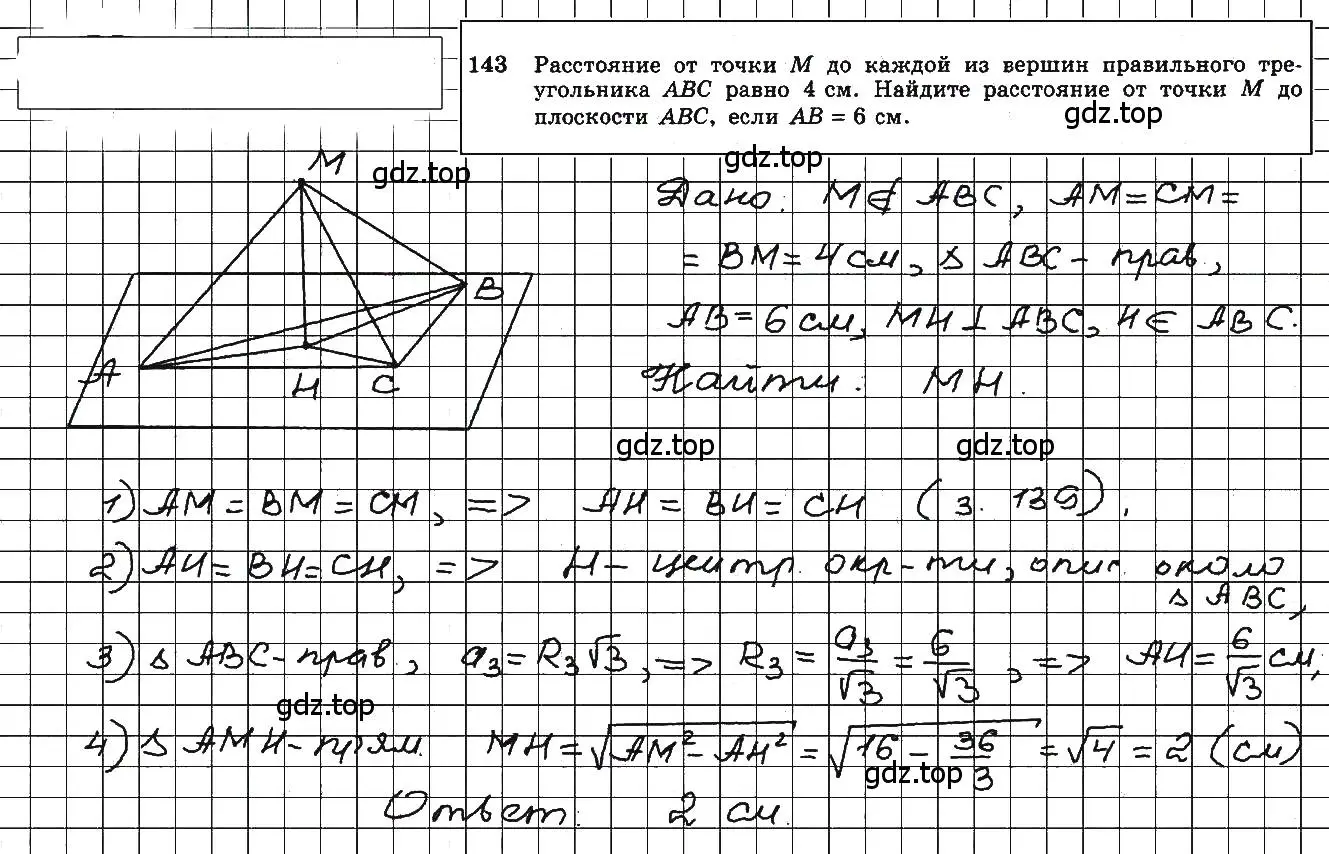 143 Расстояние от точки M до каждой из вершин правильного тре-
угольника ABC равно 4 см. Найдите расстояние от точки M до
плоскости ABC, если AB = 6 см.
gdz.top
gdz.top
gdz.top
M
B
A
H
C
Дано: M∉ ABC, AM=CM=
= BM=4см, Δ ABC- прав,
AB=6 см, MH⊥ ABC, H∈ ABC.
Найти: MH.
gdz.top
gdz.top
1) AM=BM=CM, => AH=BH=CH (з. 139).
2) AH=BH=CH, => H- центр. окр-ти, опис. около
Δ ABC,
3) Δ ABC-прав., a₃=R₃√3, => R₃=a₃/√3=6/√3, => AH=6/√3 см,
gdz.top
4) Δ AMH-прям. MH=√(AM²-AH²)=√(16-36/3)=√4=2 (см)
gdz.top
Ответ: 2 см.